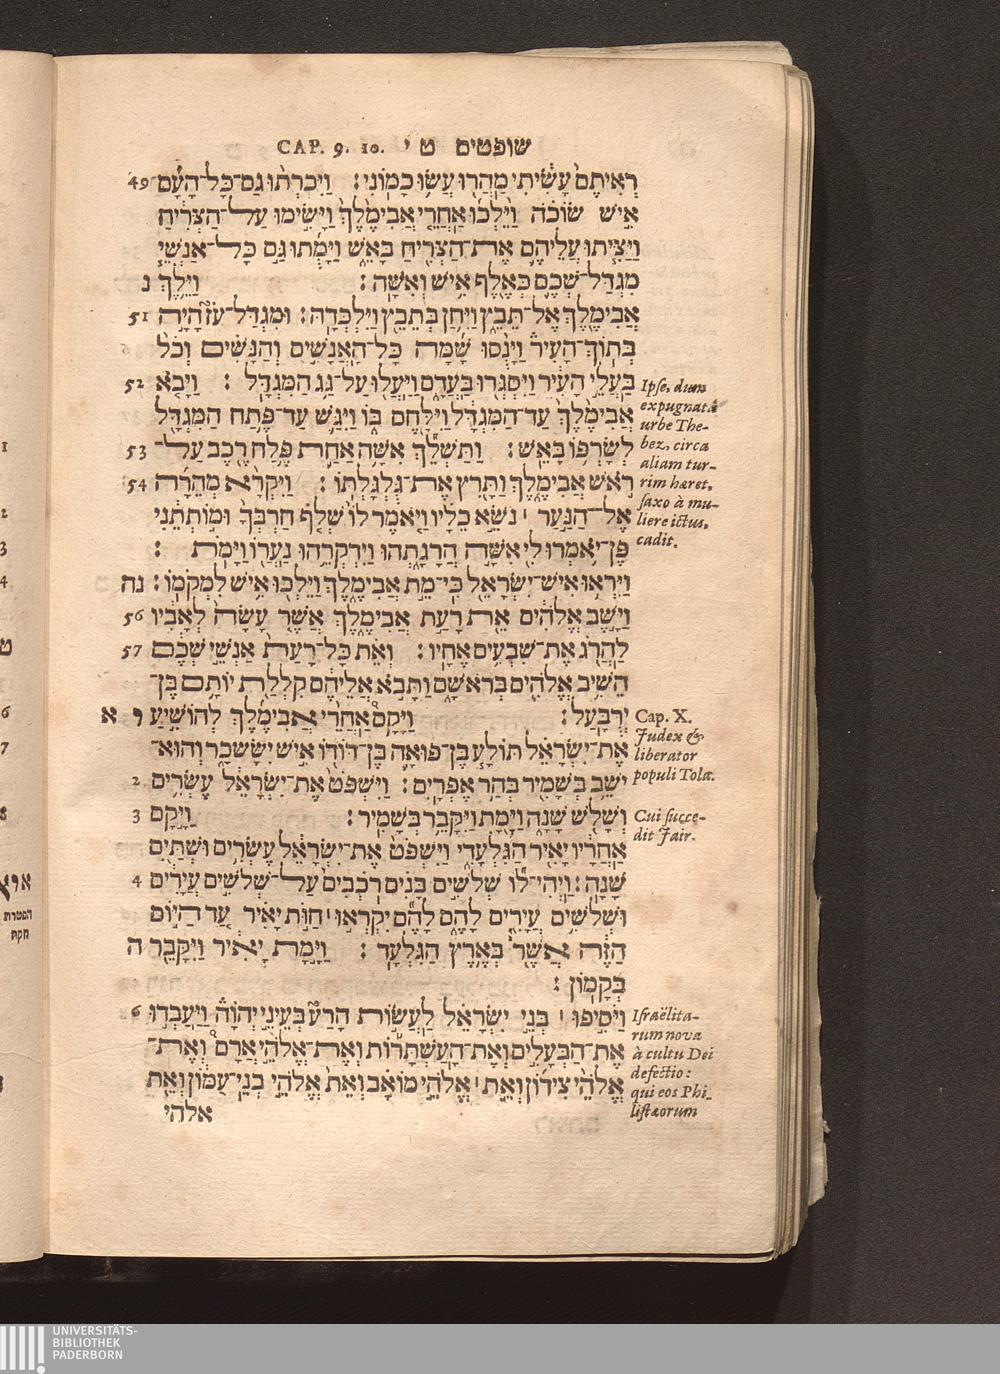 CAP. 9. 10. שופטים ט י
רְאִיתֶם עָשִׂיתִי מַהֲרוּ עֲשׂוּ כָמוֹנִי׃ וַיִּכְרְתוּ גַם־כָּל־הָעָם 49
אִישׁ שׂוֹכֹה וַיֵּלְכוּ אַחֲרֵי אֲבִימֶלֶךְ וַיָּשִׂימוּ עַל־הַצְּרִיחַ
וַיַּצִּיתוּ עֲלֵיהֶם אֶת־הַצְּרִיחַ בָּאֵשׁ וַיָּמֻתוּ גַּם כָּל־אַנְשֵׁי
מִגְדַּל־שְׁכֶם כְּאֶלֶף אִישׁ וְאִשָּׁה׃ וַיֵּלֶךְ נ
אֲבִימֶלֶךְ אֶל־תֵּבֵץ וַיִּחַן בְּתֵבֵץ וַיִּלְכְּדָהּ׃ וּמִגְדַּל־עֹז הָיָה 51
בְתוֹךְ־הָעִיר וַיָּנֻסוּ שָׁמָּה כָּל־הָאֲנָשִׁים וְהַנָּשִׁים וְכֹל
בַּעֲלֵי הָעִיר וַיִּסְגְּרוּ בַּעֲדָם וַיַּעֲלוּ עַל־גַּג הַמִּגְדָּל׃ וַיָּבֹא 52
אֲבִימֶלֶךְ עַד־הַמִּגְדָּל וַיִּלָּחֶם בּוֹ וַיִּגַּשׁ עַד־פֶּתַח הַמִּגְדָּל
לְשָׂרְפוֹ בָאֵשׁ׃ וַתַּשְׁלֵךְ אִשָּׁה אַחַת פֶּלַח רֶכֶב עַל־ 53
רֹאשׁ אֲבִימֶלֶךְ וַתָּרִץ אֶת־גֻּלְגָּלְתּוֹ׃ וַיִּקְרָא מְהֵרָה 54
אֶל־הַנַּעַר ׀ נֹשֵׂא כֵלָיו וַיֹּאמֶר לוֹ שְׁלֹף חַרְבְּךָ וּמוֹתְתֵנִי
פֶּן־יֹאמְרוּ לִי אִשָּׁה הֲרָגָתְהוּ וַיִּדְקְרֵהוּ נַעֲרוֹ וַיָּמֹת׃
וַיִּרְאוּ אִישׁ־יִשְׂרָאֵל כִּי־מֵת אֲבִימֶלֶךְ וַיֵּלְכוּ אִישׁ לִמְקֹמוֹ׃ נה
וַיָּשֶׁב אֱלֹהִים אֵת רָעַת אֲבִימֶלֶךְ אֲשֶׁר עָשָׂה לְאָבִיו 56
לַהֲרֹג אֶת־שִׁבְעִים אֶחָיו׃ וְאֵת כָּל־רָעַת אַנְשֵׁי שְׁכֶם 57
הֵשִׁיב אֱלֹהִים בְּרֹאשָׁם וַתָּבֹא אֲלֵיהֶם קִלֲלַת יוֹתָם בֶּן־
יְרֻבָּעַל׃ וַיָּקָם אַחֲרֵי אֲבִימֶלֶךְ לְהוֹשִׁיעַ י א
אֶת־יִשְׂרָאֵל תּוֹלָע בֶּן־פּוּאָה בֶּן־דּוֹדוֹ אִישׁ יִשָּׂשכָר וְהוּא־
יֹשֵׁב בְּשָׁמִיר בְּהַר אֶפְרָיִם׃ וַיִּשְׁפֹּט אֶת־יִשְׂרָאֵל עֶשְׂרִים 2
וְשָׁלֹשׁ שָׁנָה וַיָּמָת וַיִּקָּבֵר בְּשָׁמִיר׃ וַיָּקָם 3
אַחֲרָיו יָאִיר הַגִּלְעָדִי וַיִּשְׁפֹּט אֶת־יִשְׂרָאֵל עֶשְׂרִים וּשְׁתַּיִם
שָׁנָה׃ וַיְהִי־לוֹ שְׁלֹשִׁים בָּנִים רֹכְבִים עַל־שְׁלֹשִׁים עֲיָרִים 4
וּשְׁלֹשִׁים עֲיָרִים לָהֶם לָהֶם יִקְרְאוּ ׀ חַוֹּת יָאִיר עַד הַיּוֹם
הַזֶּה אֲשֶׁר בְּאֶרֶץ הַגִּלְעָד׃ וַיָּמָת יָאִיר וַיִּקָּבֵר ה
בְּקָמוֹן׃
וַיֹּסִיפוּ ׀ בְּנֵי יִשְׂרָאֵל לַעֲשׂוֹת הָרַע בְּעֵינֵי יְהוָֹה וַיַּעַבְדוּ 6
אֶת־הַבְּעָלִים וְאֶת־הָעַשְׁתָּרוֹת וְאֶת־אֱלֹהֵי אֲרָם וְאֶת־
אֱלֹהֵי צִידוֹן וְאֵת ׀ אֱלֹהֵי מוֹאָב וְאֵת אֱלֹהֵי בְנֵי־עַמּוֹן וְאֵת
אלהי
Ipse, dum
expugnata
urbe The-
bez, circa
aliam tur-
rim hæret,
saxo à mu-
liere ictus,
cadit.
Cap. X.
Judex &
liberator
populi Tola.
Cui succe-
dit Jair.
Israëlita-
rum nova
à cultu Dei
defectio:
qui eos Phi-
listæorum
1
2
3
4
ט
6
7
8
הפטרת
חקת
UNIVERSITÄTS-
BIBLIOTHEK
PADERBORN